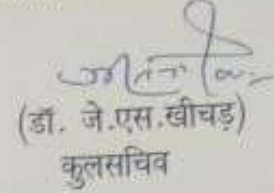 (डॉ. जे.एस.खीचड़)
कुलसचिव